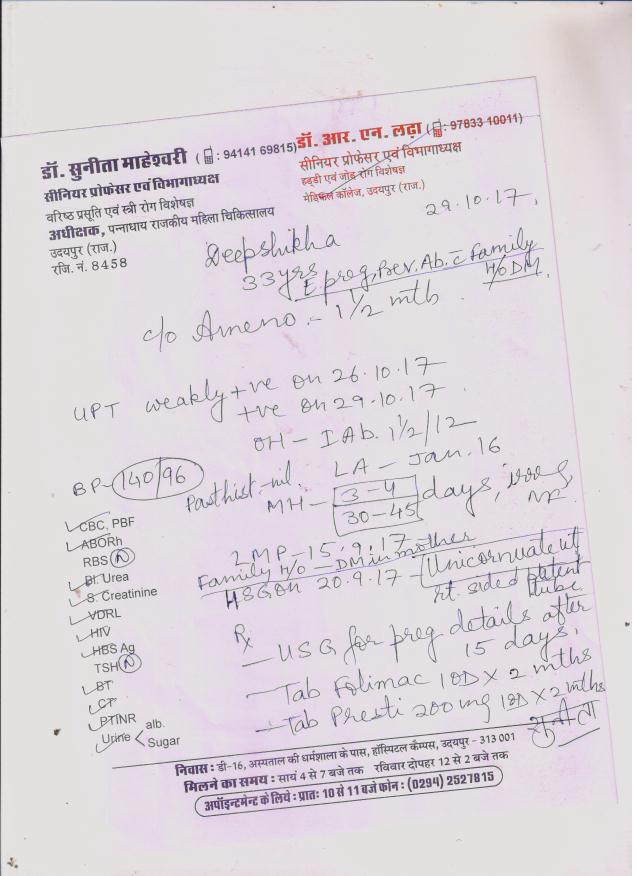 डॉ. सुनीता माहेश्वरी (: 94141 69815)
सीनियर प्रोफेसर एवं विभागाध्यक्ष
वरिष्ठ प्रसूति एवं स्त्री रोग विशेषज्ञ
अधीक्षक, पन्नाधाय राजकीय महिला चिकित्सालय
उदयपुर (राज.)
रजि. नं. 8458
डॉ. आर. एन. लढ़ा (: 97833 10011)
सीनियर प्रोफेसर एवं विभागाध्यक्ष
हड्डी एवं जोड़ रोग विशेषज्ञ
मेडिकल कॉलेज, उदयपुर (राज.)
29.10.17.
Deepshikha
33yrs
preg, Prev. Ab. c̄ Family
H/O DM.
c/o Ameno.- 1 1/2 mth
UPT weakly +ve on 26.10.17
+ve on 29.10.17.
OH - I Ab. 1 1/2/12
LA - Jan. 16
BP- 140/96
Past hist.- nil.
MH - 3-4 days,
30-45
LMP - 15.9.17
Family H/O - DM in mother
HSG on 20.9.17 - Unicornuate ut
rt. sided patent
tube
CBC, PBF
ABORh
RBS N
Bl. Urea
S. Creatinine
VDRL
HIV
HBS Ag
TSH N
BT
CT
PTINR
Urine < alb.
Sugar
Rx
- USG for preg details after
15 days.
- Tab Folimac 1OD X 2 mths
- Tab Presti 200 mg 1OD X 2 mths
सुनीता
निवास : डी-16, अस्पताल की धर्मशाला के पास, हॉस्पिटल कैम्पस, उदयपुर - 313 001
मिलने का समय : सायं 4 से 7 बजे तक रविवार दोपहर 12 से 2 बजे तक
अपॉइन्टमेन्ट के लिये : प्रातः 10 से 11 बजे फोन : (0294) 2527815